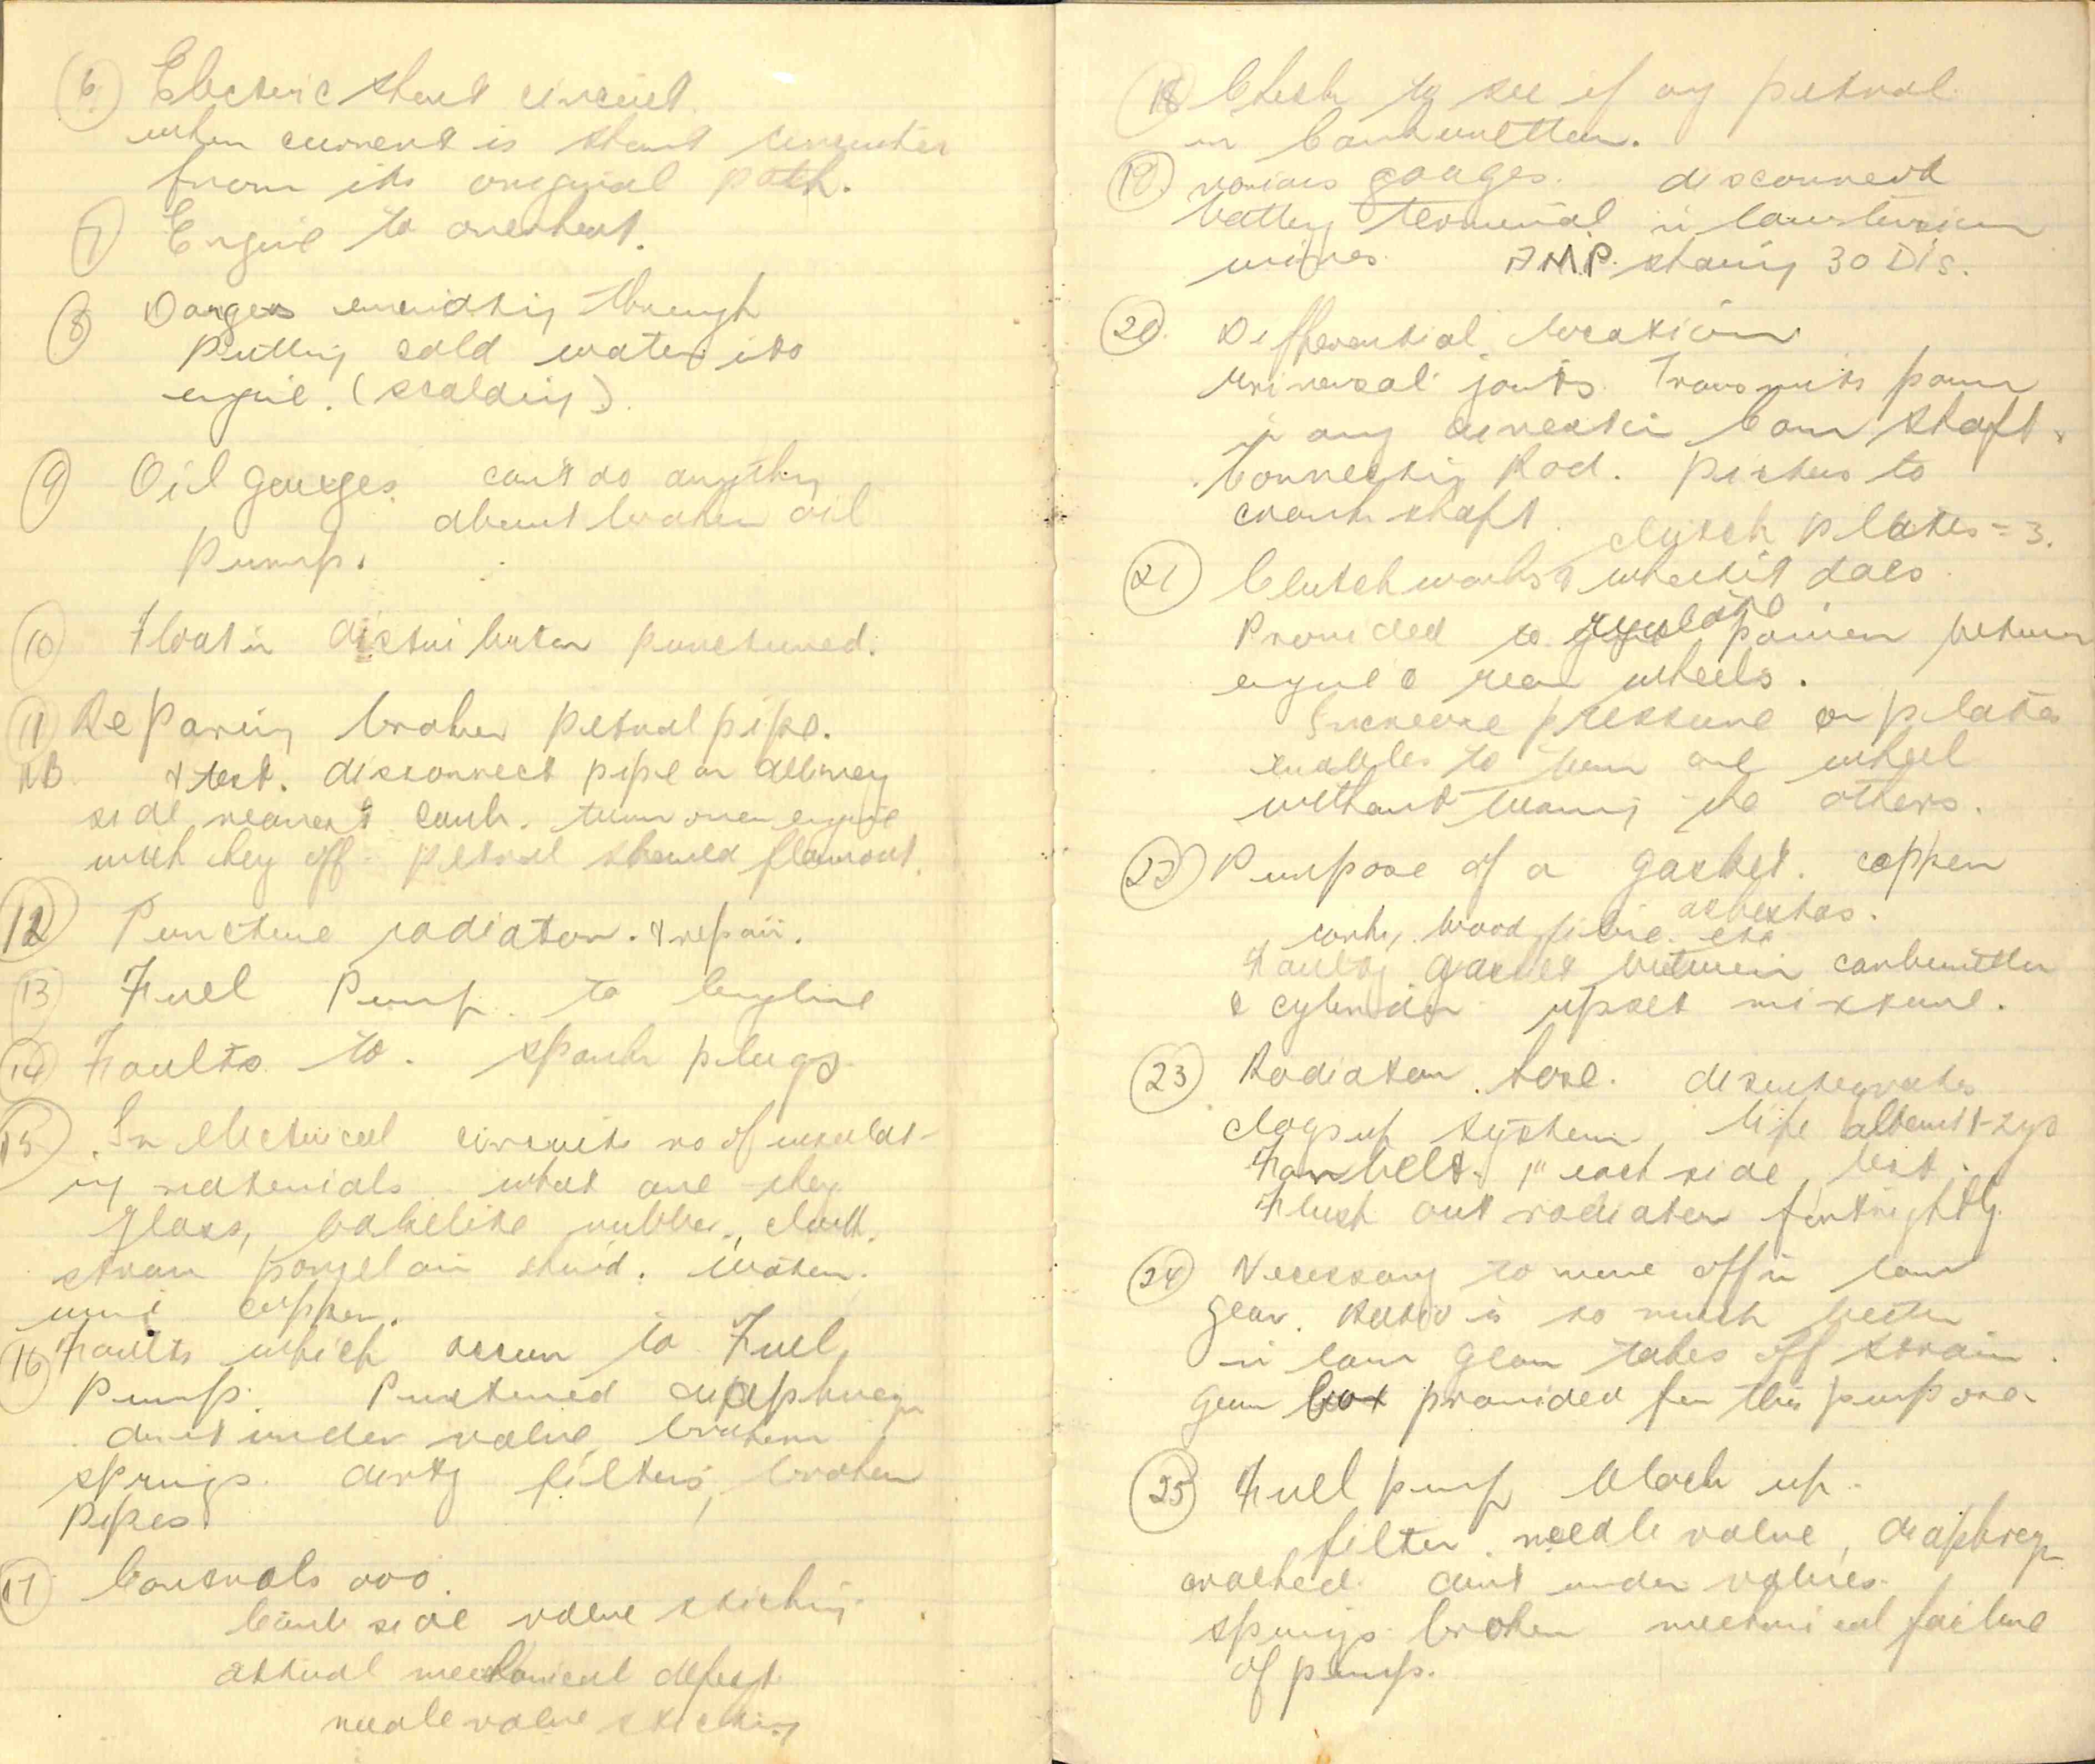 6. Electric short circuit.
when current is short
from its original path.
7 Engine to overheat.
8 Dangers through
putting cold water into
engine. (scalding).
9 Oil gauges. can't do anything
about broken oil
Pump.
10 Float in distributor punctured.
11 Reparing broken petrol pipe.
NB & test. disconnect pipe on delivery
side nearest carb. turn over engine
with key off. petrol
12 Puncture radiator. & repair.
13 Fuel Pump. to
14 Faults to. spark plugs
15. In electrical circuit no of insulat-
ing materials what are they
glass, bakelite rubber, cloth.
water.
copper.
16 Faults which occur to Fuel
Pump.
dirt under valve, broken
springs. dirty filters, broken
Pipes.
17 Controls
Carb side valve sticking
actual mechanical defect
needle valve sticking
18 Check to see if any petrol
in
19. various goages. disconnect
terminal
30 Dis.
20. Differential location
universal joints. Transmits power
in any
Connecting Rod. Pistons to
crank shaft.
clutch Plates = 3.
21 Clutch works & what it does
Provided to between
engine & rear wheels.
Increase pressure on plates
enables to turn one wheel
without turning the others.
22 Purpose of a gasket. copper
asbestos.
cork, wood, fibre. etc
Faulty gasket between
& upset mixture.
23 Radiator hose. disintegrates
clogs up system, life about
Fan belt. 1" each side test.
Flush out radiator fortnightly.
24 Necessary to move off in low
gear. Ratio is so much better
in low gear takes off strain.
gear box provided for this purpose
25 Fuel pump block up.
filter. needle valve,
dirt under valves.
springs broken failure
of pump.